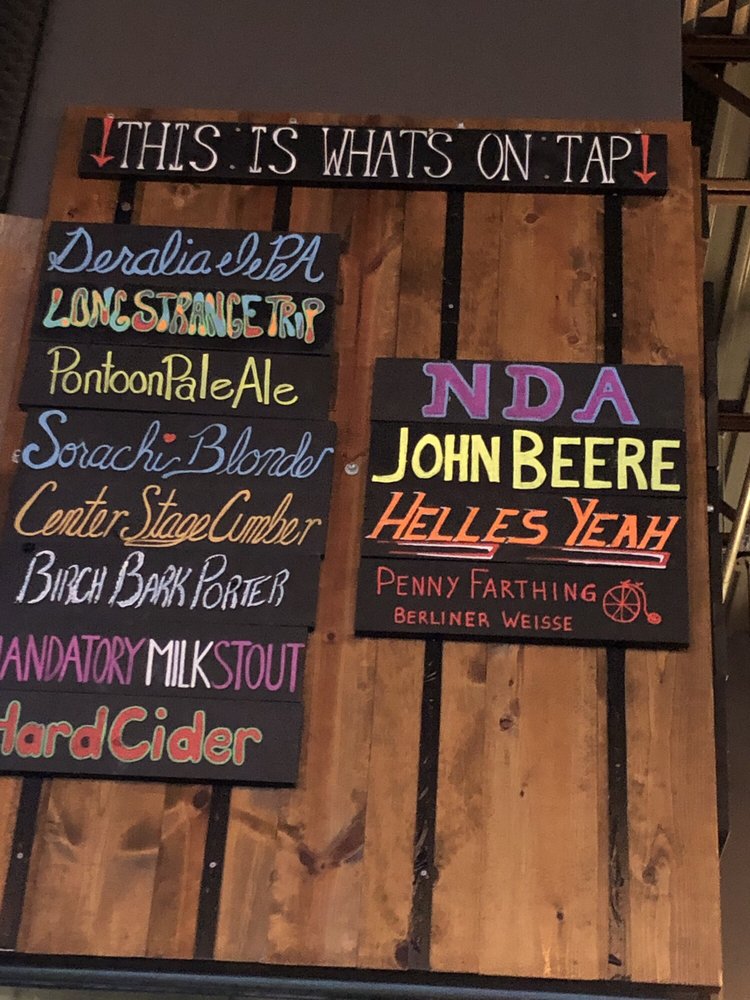 THIS IS WHAT'S ON TAP
Deralia IPA
LONG STRANGE TRIP
Pontoon Pale Ale
Sorachi Blonde
Center Stage Cumber
BIRCH BARK PORTER
MANDATORY MILK STOUT
Hard Cider
NDA
JOHN BEERE
HELLES YEAH
PENNY FARTHING
BERLINER WEISSE